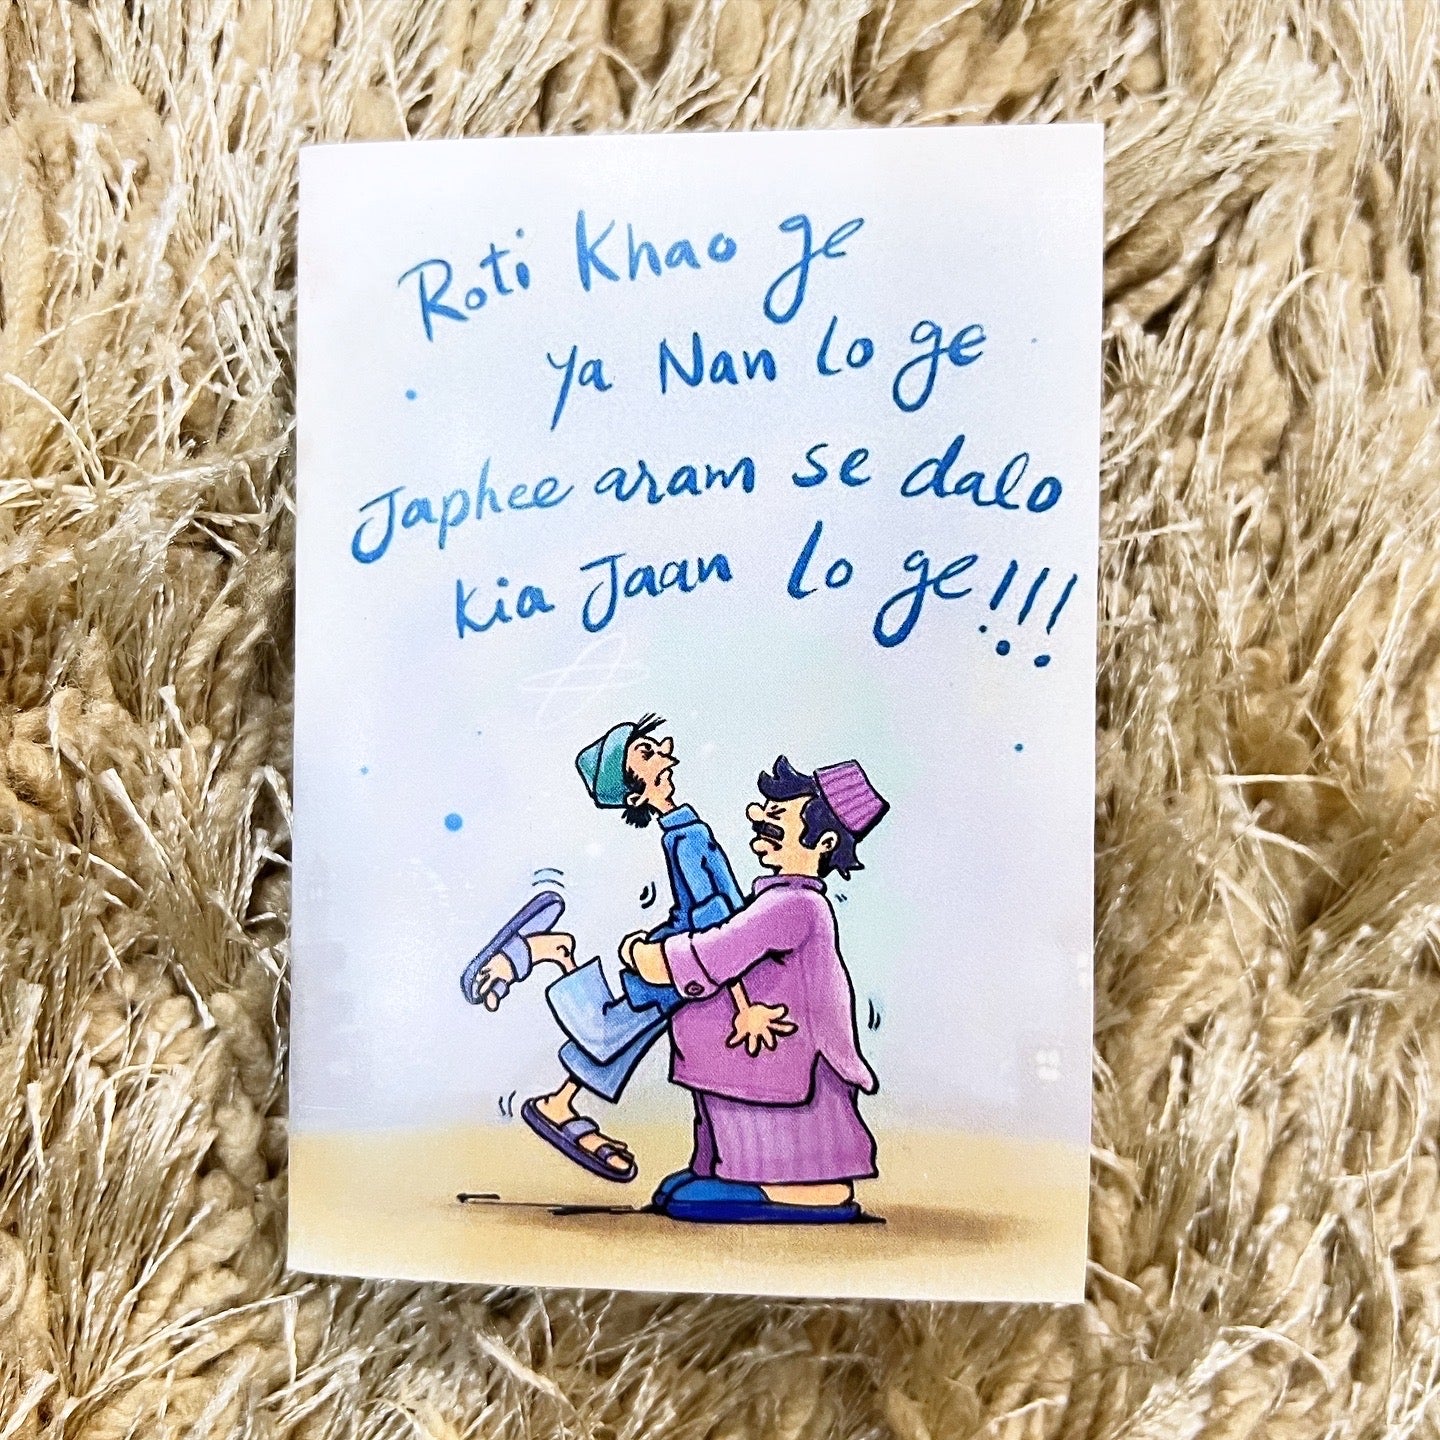 Roti Khao ge
ya Nan lo ge
Japhee aram se dalo
kia Jaan lo ge!!!